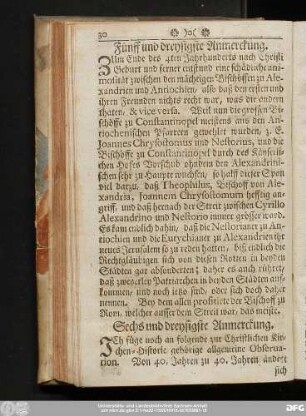 30
Fünff und dreysigste Anmerckung.
ZUm Ende des 4ten Jahrhunderts nach Christi
Geburt und ferner entstund eine schädliche ani-
mosität zwischen den mächtigen Bischöffen zu Ale-
xandrien und Antiochien, also daß den ersten und
ihren Freunden nichts recht war, was die andern
thaten, & vice versa. Weil nun die grossen Bi-
schöffe zu Constantinopel meistens aus den An-
tiochenischen Pfarrern gewehlet wurden, z. E.
Joannes Chrysostomus und Nestorius, und die
Bischöffe zu Constantinopel durch des Käyserli-
chen Hofes Vorschub ohndem den Alexandrini-
schen sehr zu Haupte wuchsen, so halff dieser Eyver
viel darzu, daß Theophilus, Bischoff von Ale-
xandria, Joannem Chrysostomum hefftig an-
griff, und daß hernach der Streit zwischen Cyrillo
Alexandrino und Nestorio immer grösser ward.
Es kam endlich dahin, daß die Nestorianer zu An-
tiochien und die Eutychianer zu Alexandrien ihr
neues Jerusalem so zu reden hatten, biß endlich die
Rechtgläubigen sich von diesen Rotten in beyden
Städten gar absonderten; daher es auch rühret,
daß zweyerley Patriarchen in beyden Städten auf-
kommen, und noch itzo sind, oder sich doch daher
nennen. Bey dem allen profitirte der Bischoff zu
Rom, welcher ausser dem Streit war, das meiste.
Sechs und dreysigste Anmerckung.
JCh füge noch an folgende zur Christlichen Kir-
chen-Historie gehörige allgemeine Observa-
tion. Von 40. Jahren zu 40. Jahren ändert
sich